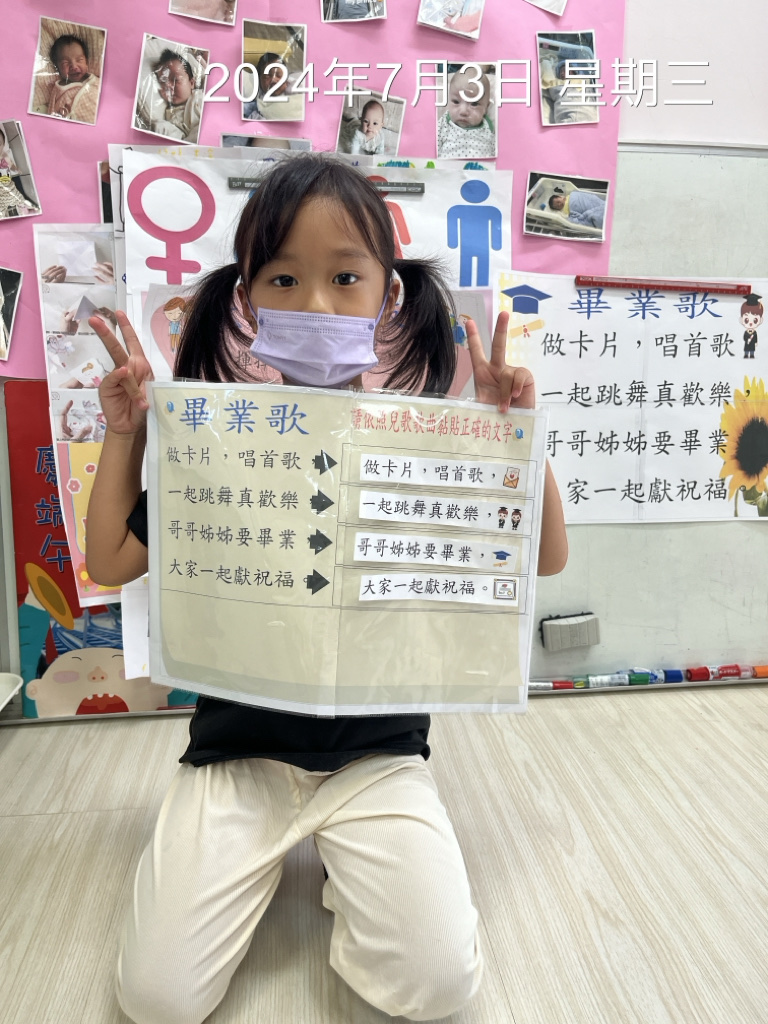 2024年7月3日 星期三
畢業歌
做卡片，唱首歌
一起跳舞真歡樂，
哥哥姊姊要畢業
家一起獻祝福。
慶端午
畢業歌
做卡片，唱首歌
一起跳舞真歡樂
哥哥姊姊要畢業
大家一起獻祝福。
請依照兒歌歌曲黏貼正確的文字
做卡片，唱首歌，
一起跳舞真歡樂，
哥哥姊姊要畢業，
大家一起獻祝福。